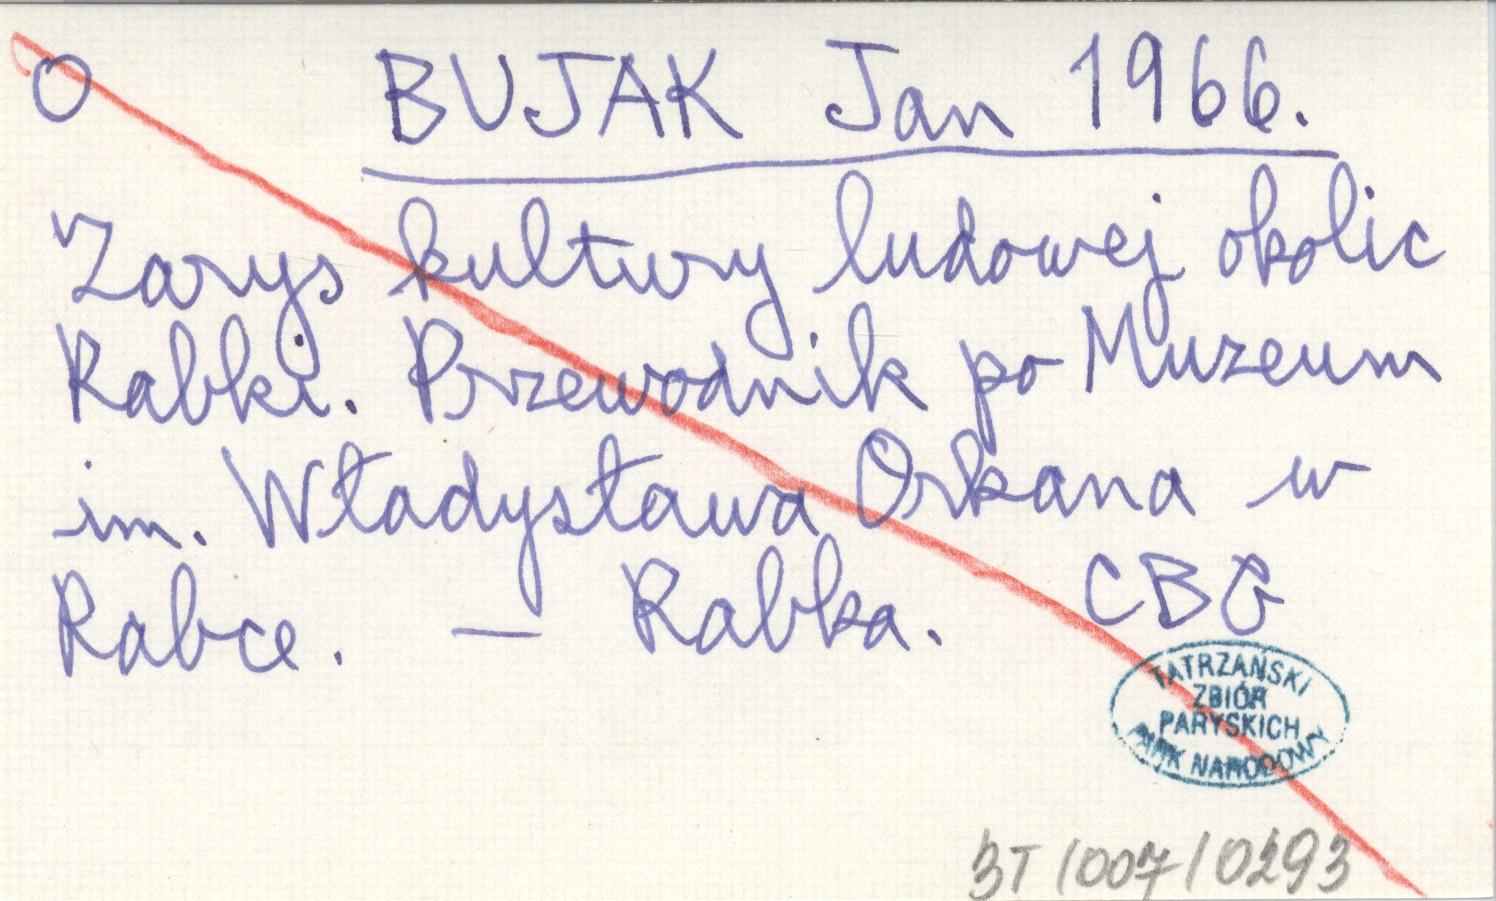 O BUJAK Jan 1966.
Zarys kultury ludowej okolic
Rabki. Przewodnik po Muzeum
im. Władysława Orkana w
Rabce. — Rabka. CBG
TATRZAŃSKI
ZBIÓR
PARYSKICH
PARK NARODOWY
BT/007/0293